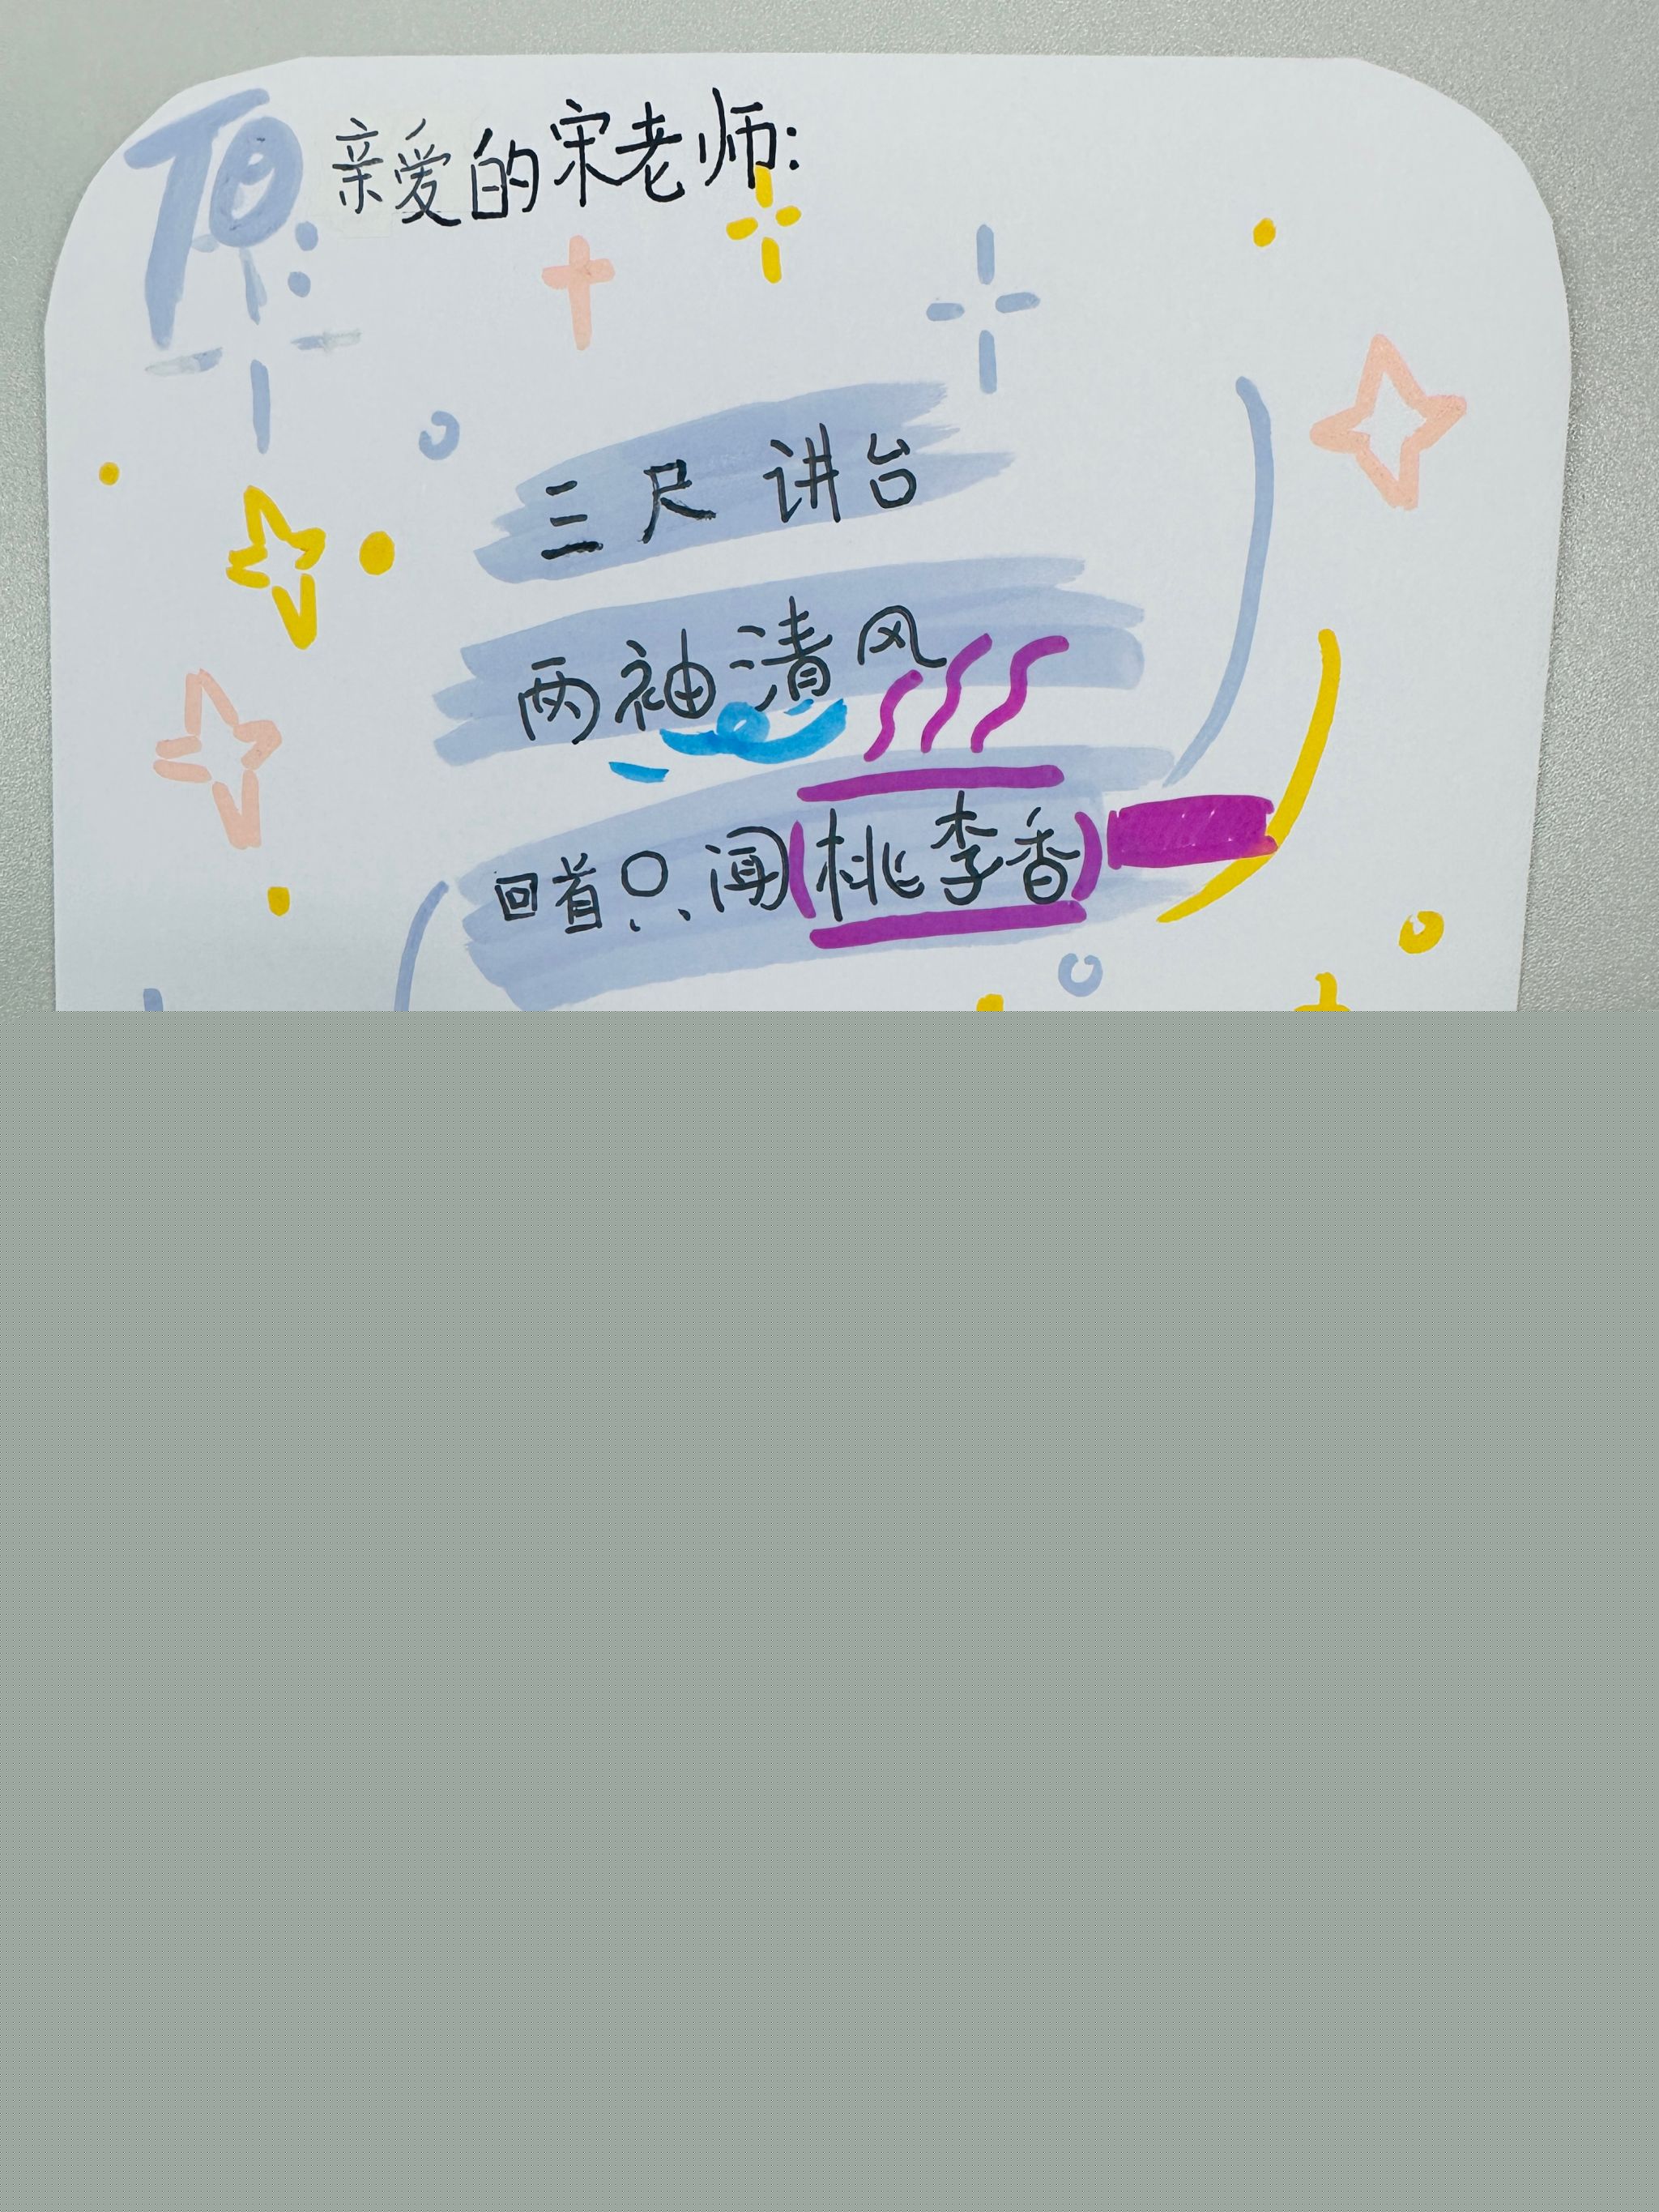 To: 亲爱的宋老师:
三尺讲台
两袖清风
回首只闻(桃李香)